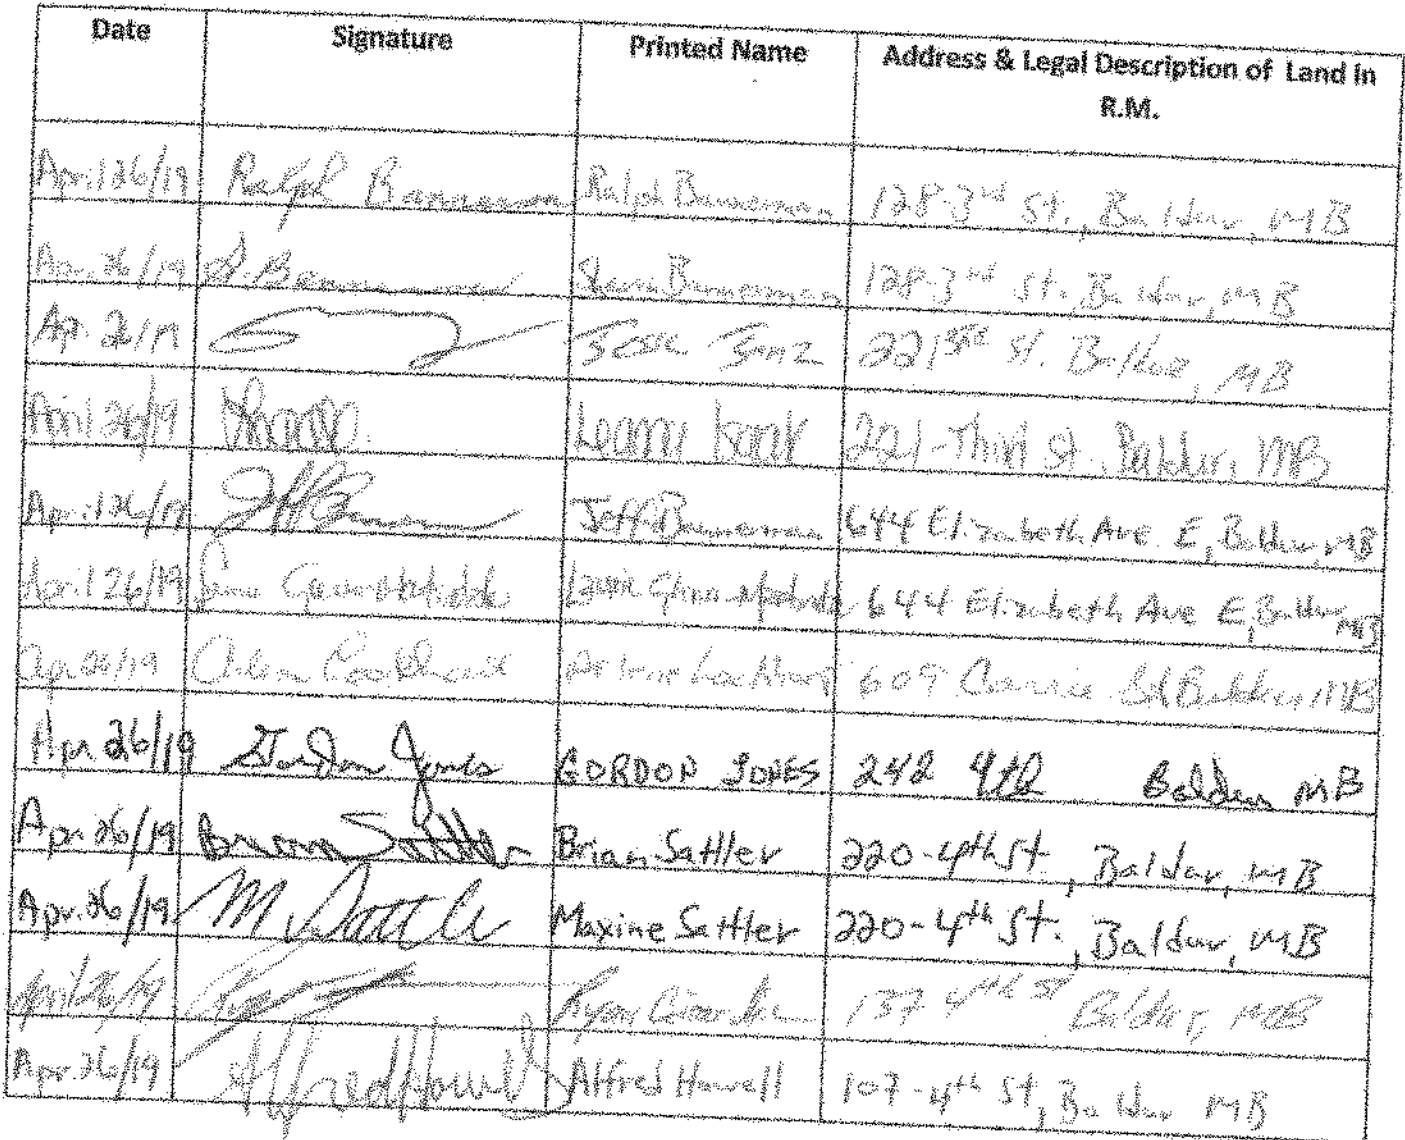 Date Signature Printed Name Address & Legal Description of Land in
R.M.
April 26/19 Ralph Bannerman Ralph Bannerman 128-3rd St., Baldur, MB
Apr. 26/19 Bannerman 128-3rd St., Baldur, MB
Ap. 26/19 Jesse 221 3rd St. Baldur, MB
April 26/19 Leanne Isaak 221-Third St. Baldur, MB
April 26/19 Jeff Bannerman 644 Elizabeth Ave E, Baldur, MB
April 26/19 644 Elizabeth Ave E, Baldur MB
Apr 26/19 609 Baldur MB
Apr. 26/19 Gordon Jones GORDON JONES 242 4th Baldur MB
Apr. 26/19 Brian Sattler Brian Sattler 220-4th St., Baldur, MB
Apr. 26/19 M Sattler Maxine Sattler 220-4th St., Baldur, MB
April 26/19 Ryan 137 4th St Baldur, MB
Apr. 26/19 Alfred Howell Alfred Howell 107-4th St, Baldur MB